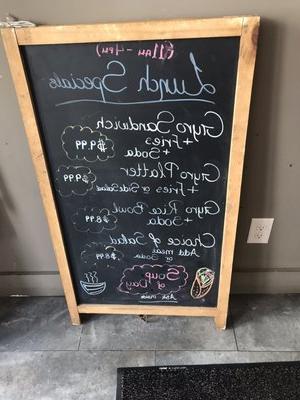 (11AM - 4PM)
Lunch Specials
Gyro Sandwich
+ Fries
+ Soda
$9.99
Gyro Platter
+ Fries or Side Salad
$9.99
Gyro Rice Bowl
+ Soda
$8.99
Choice of Salad
Add meat
or Soda
$8.99
Soup
of Day
Ask